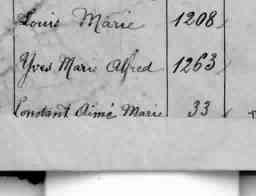 Louis Marie 1208
Yves Marie Alfred 1263
Constant Aimé Marie 33